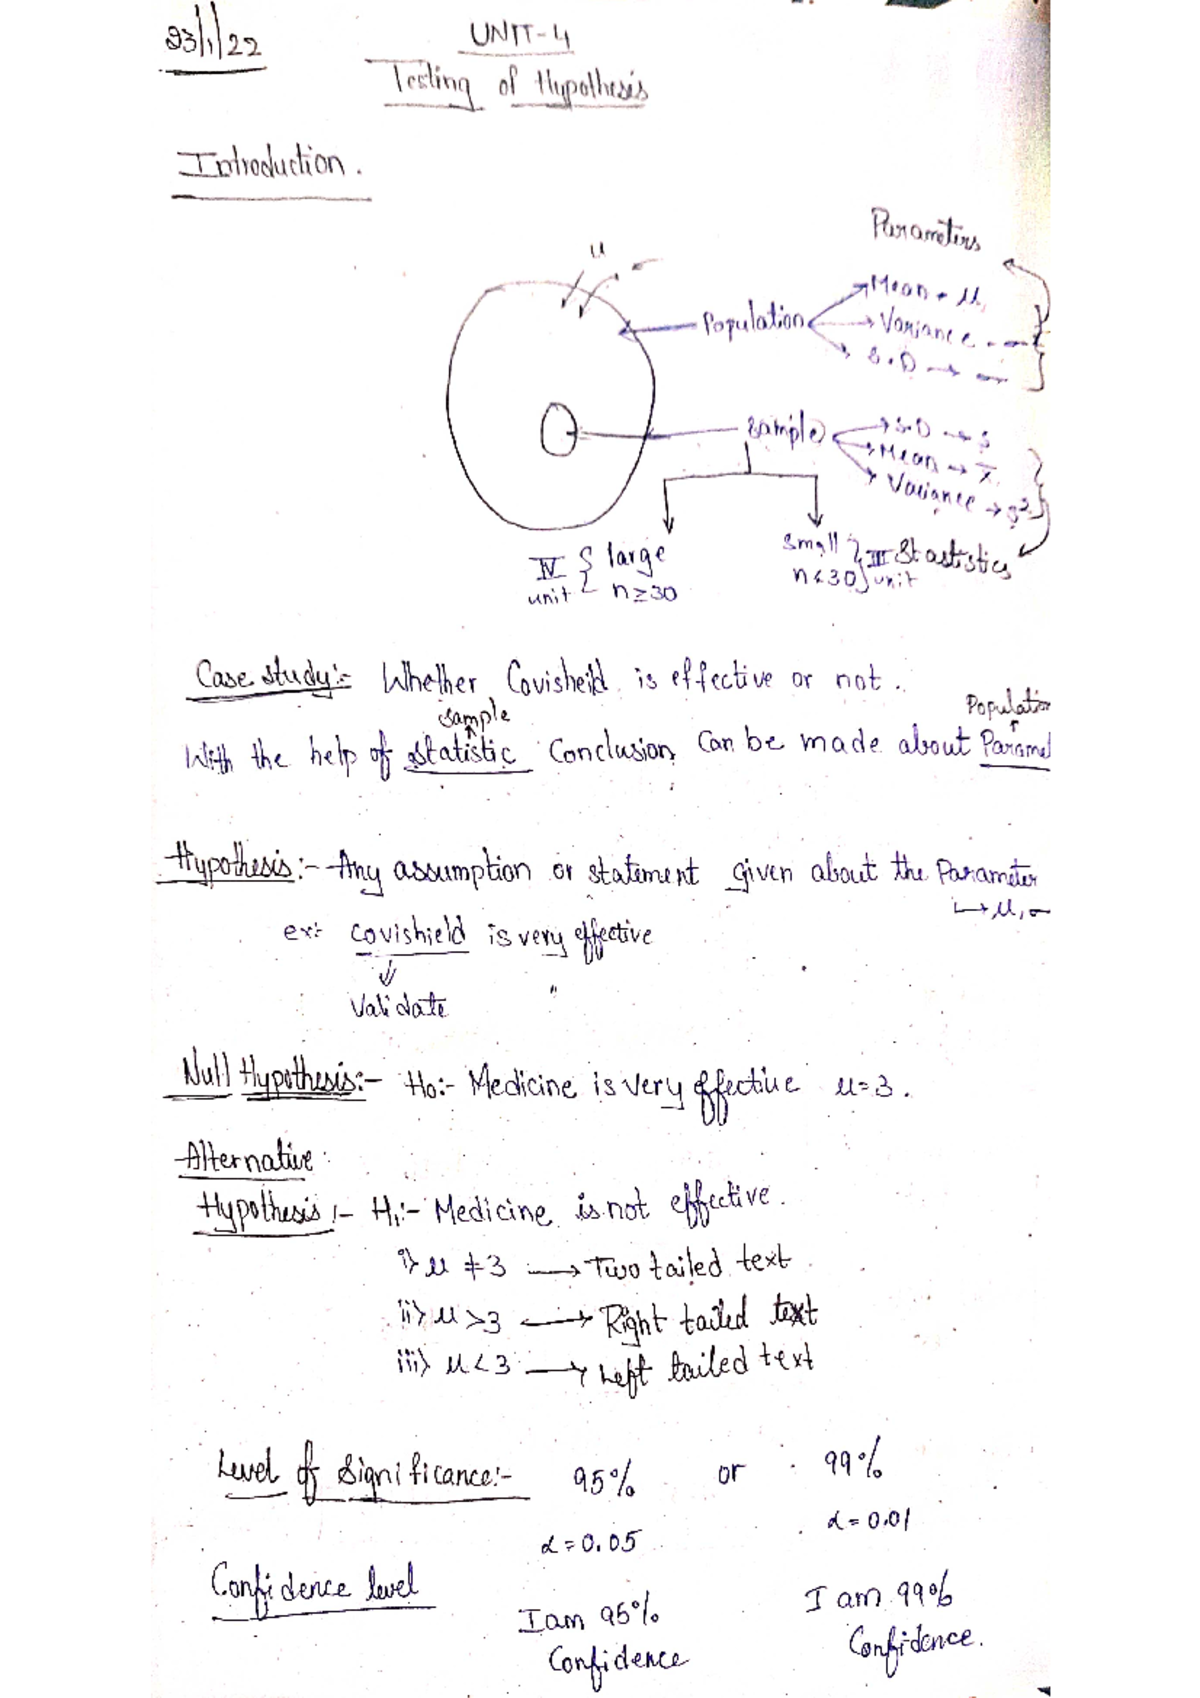 23/1/22
UNIT-4
Testing of Hypothesis
Introduction.
Parameters
μ
σ
Population
Mean → μ
Variance - σ
S.D → σ
Sample
S.D → s
Mean → x̄
Variance → s²
IV unit { large n ≥ 30
small n < 30 } III unit
Stastistics
Case study:- Whether Covisheild is effective or not.
sample
Population
With the help of statistic Conclusion Can be made about Paramet
Hypothesis:- Any assumption or statement given about the Parameter
↳ μ, σ
ex:- covishield is very effective
⇓
Validate
Null Hypothesis:- H0:- Medicine is very effective μ=3.
Alternative:
Hypothesis:- H1:- Medicine is not effective.
i) μ ≠ 3 → Two tailed text
ii) μ > 3 → Right tailed text
iii) μ < 3 → Left tailed text
Level of Significance:- 95% or 99%
α = 0.05 α = 0.01
Confidence level
I am 95% Confidence
I am 99% Confidence.